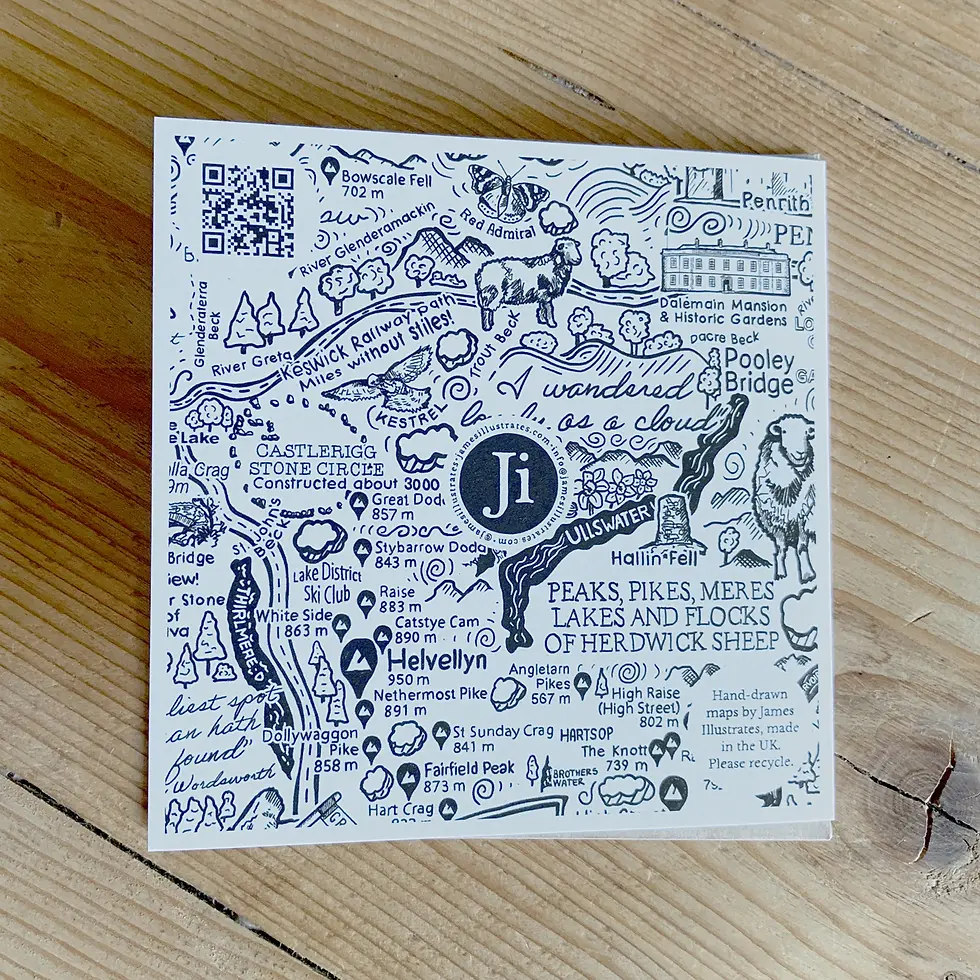 Bowscale Fell
702 m
Red Admiral
River Glenderamackin
Penrith
Dalemain Mansion
& Historic Gardens
Dacre Beck
Glenderaterra
Beck
River Greta
Keswick Railway path
Miles without stiles!
Trout Beck
KESTREL
Pooley
Bridge
I wandered
as a cloud
e Lake
CASTLERIGG
STONE CIRCLE
Constructed about 3000
lla Crag
9m
Great Dod
857 m
Ji
jamesillustrates.com
info@jamesillustrates.com
@jamesillustrates
St Johns
Beck
Stybarrow Dodd
843 m
ULLSWATER
Hallin Fell
Bridge
iew!
Lake District
Ski Club
Raise
883 m
r Stone
of
va
THIRLMERE
White Side
863 m
Catstye Cam
890 m
PEAKS, PIKES, MERES
LAKES AND FLOCKS
OF HERDWICK SHEEP
Helvellyn
950 m
Nethermost Pike
891 m
Angletarn
Pikes
567 m
High Raise
(High Street)
802 m
Hand-drawn
maps by James
Illustrates, made
in the UK.
Please recycle.
liest spot
an hath
found"
Wordsworth
Dollywaggon
Pike
858 m
St Sunday Crag
841 m
HARTSOP
The Knott
739 m
Fairfield Peak
873 m
BROTHERS
WATER
Hart Crag